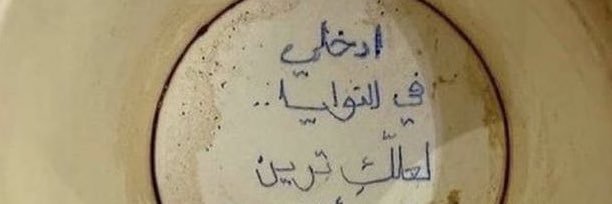 ادخلي
في النوايا ..
لعلّكِ ترين